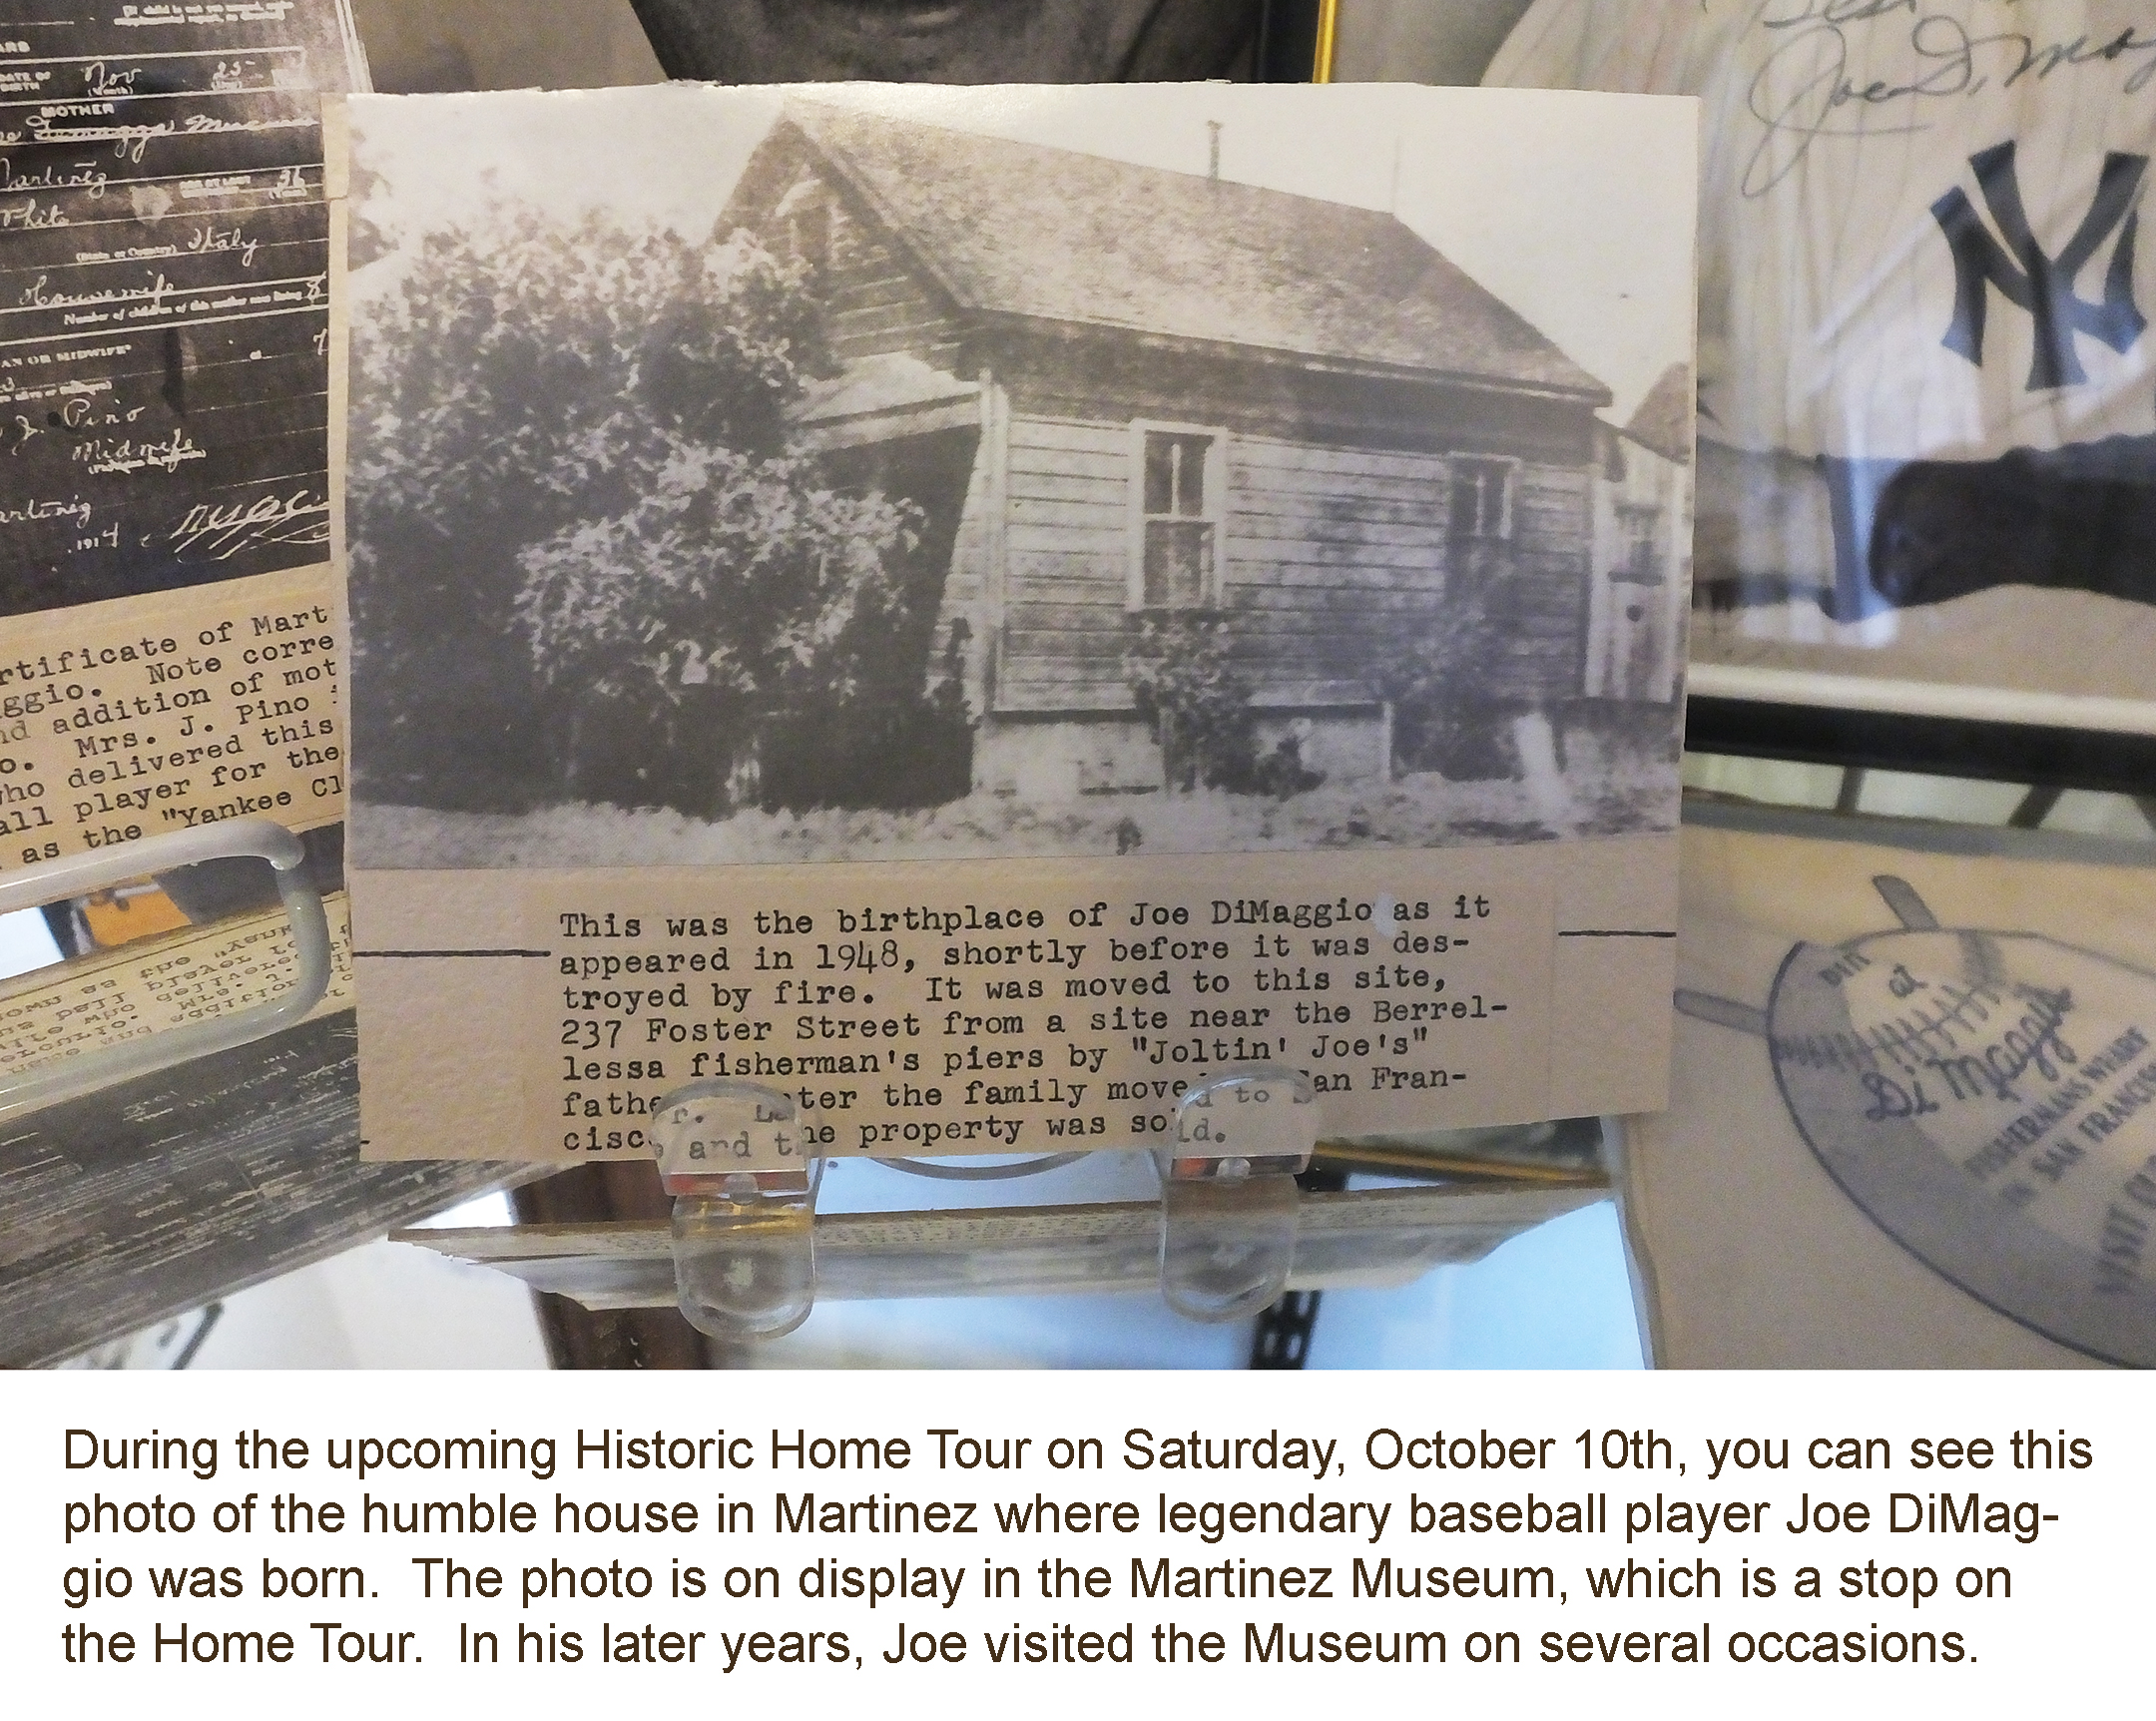 ARD
DATE OF BIRTH Nov 25
(Month)
MOTHER
Martinez
White 36
(State or Country) Italy
Housewife
Number of children of this mother now living 8
AN OR MIDWIFE*
J. Pino
Midwife
1914
rtificate of Mart
ggio. Note corre
nd addition of mot
o. Mrs. J. Pino
who delivered this
all player for the
as the "Yankee Cl
Best
Joe DiMag
NY
This was the birthplace of Joe DiMaggio as it
appeared in 1948, shortly before it was des-
troyed by fire. It was moved to this site,
237 Foster Street from a site near the Berrel-
lessa fisherman's piers by "Joltin' Joe's"
father. Later the family moved to San Fran-
cisco and the property was sold.
at
DiMaggio
FISHERMANS WHARF
IN SAN FRANCIS
VISIT OUR
During the upcoming Historic Home Tour on Saturday, October 10th, you can see this
photo of the humble house in Martinez where legendary baseball player Joe DiMag-
gio was born. The photo is on display in the Martinez Museum, which is a stop on
the Home Tour. In his later years, Joe visited the Museum on several occasions.